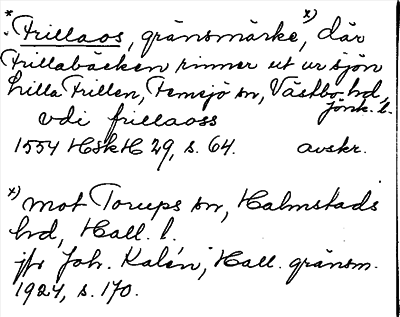 *Frillaos, gränsmärke, x) där
Frillabäcken rinner ut ur sjön
Lilla Frillen, Femsjö sn, Västbo hd,
Jönk. l.
vdi frillaoss
1554 HSkH 29, s. 64. avskr.
x) mot Torups sn, Halmstads
hd, Hall. l.
jfr Joh. Kalén, Hall. gränsm.
1924, s. 170.